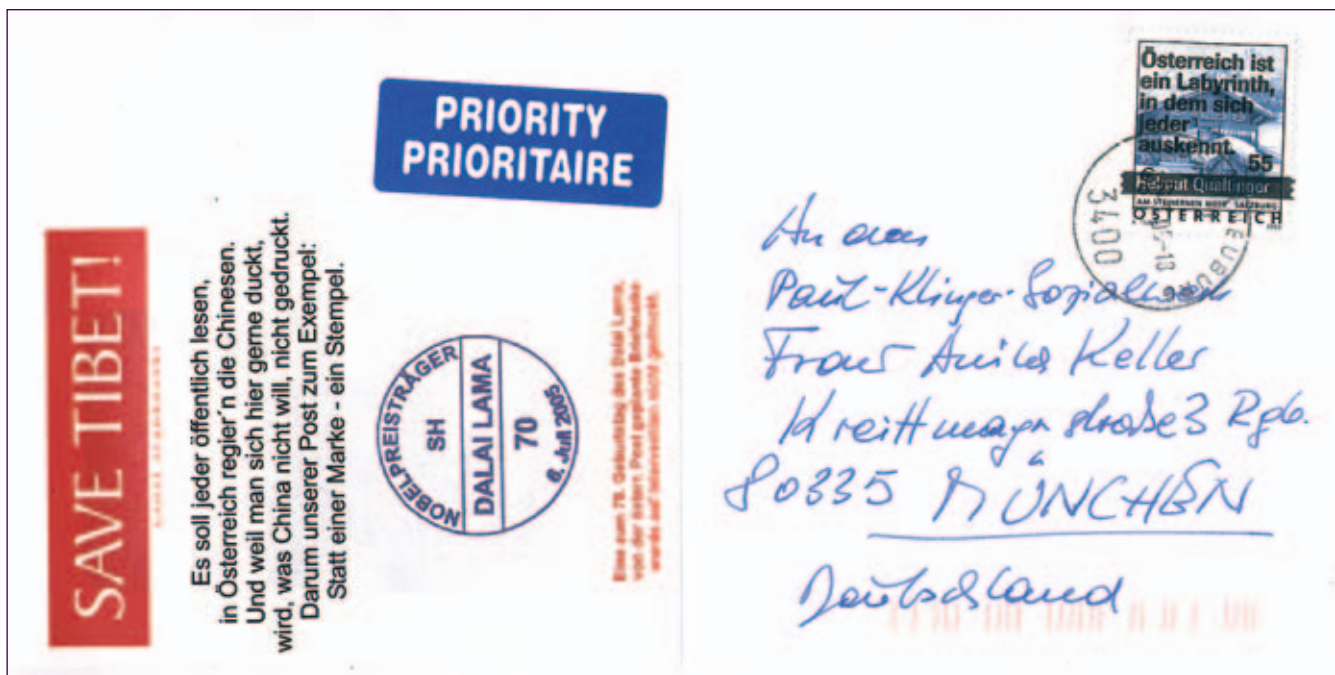 SAVE TIBET!
Es soll jeder öffentlich lesen,
in Österreich regier´n die Chinesen.
Und weil man sich hier gerne duckt,
wird, was China nicht will, nicht gedruckt.
Darum unserer Post zum Exempel:
Statt einer Marke - ein Stempel.
PRIORITY
PRIORITAIRE
NOBELPREISTRÄGER
SH
DALAI LAMA
70
6. Juli 2005
Eine zum 70. Geburtstag des Dalai Lama,
von der österr. Post geplante Briefmarke
wurde auf Intervention nicht gedruckt.
Österreich ist
ein Labyrinth,
in dem sich
jeder
auskennt.
55
Helmut Qualtinger
AM STEINERNEN MEER SALZBURG
ÖSTERREICH
3400
An das
Paul-Klinger-Sozialwerk
Frau Anita Keller
Kreittmayrstraße 3 Rgb.
80335 MÜNCHEN
Deutschland